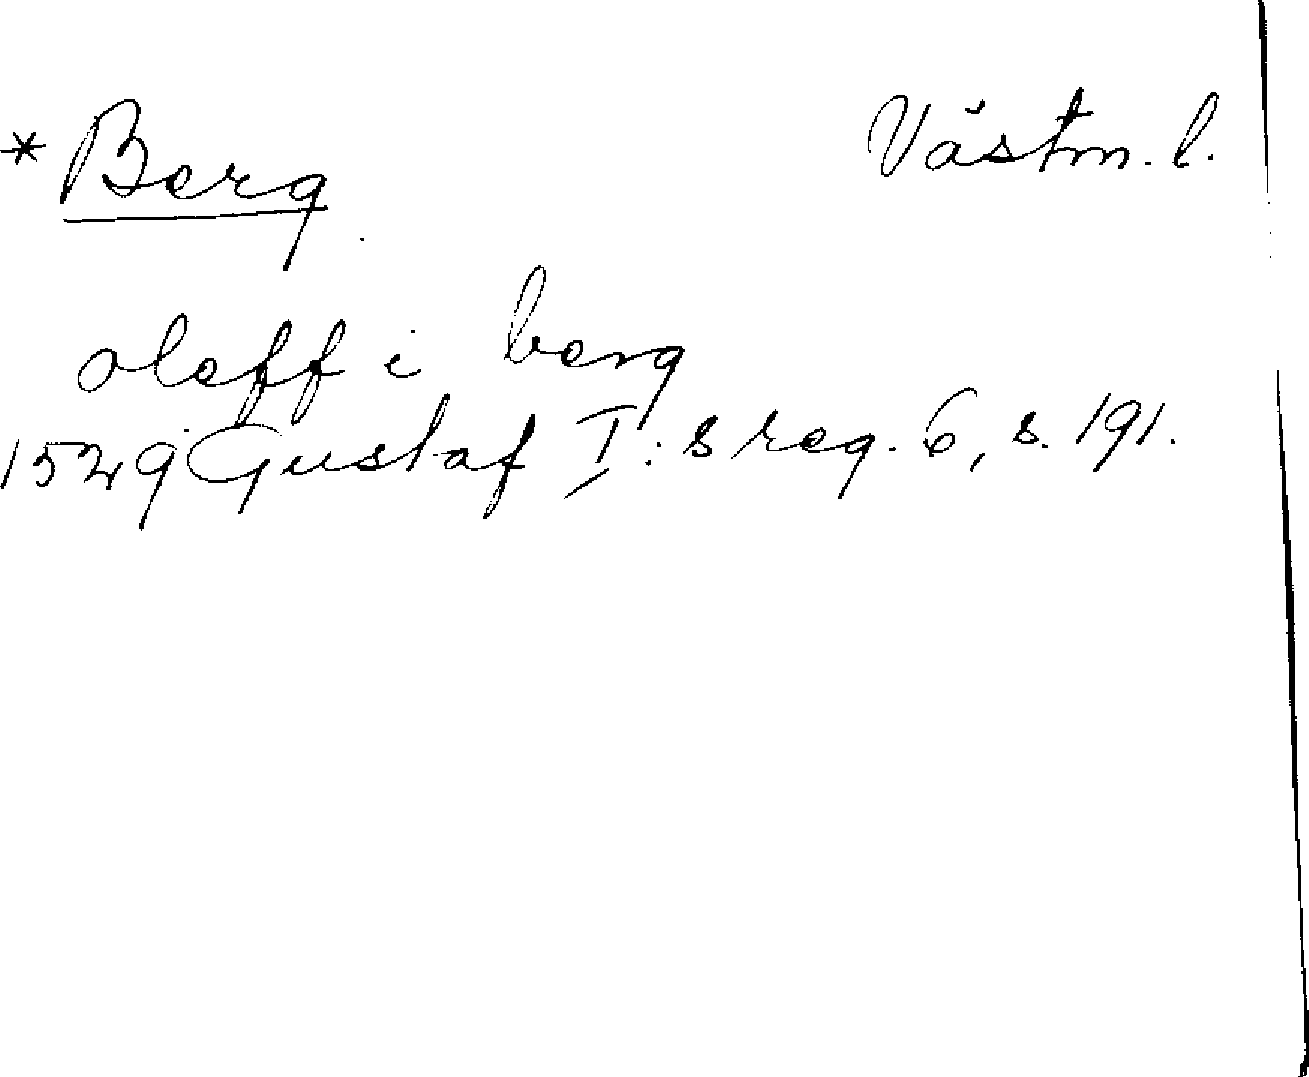 * Berg Västm. l.
oleff i berg
1529 Gustaf I:s reg. 6, s. 191.